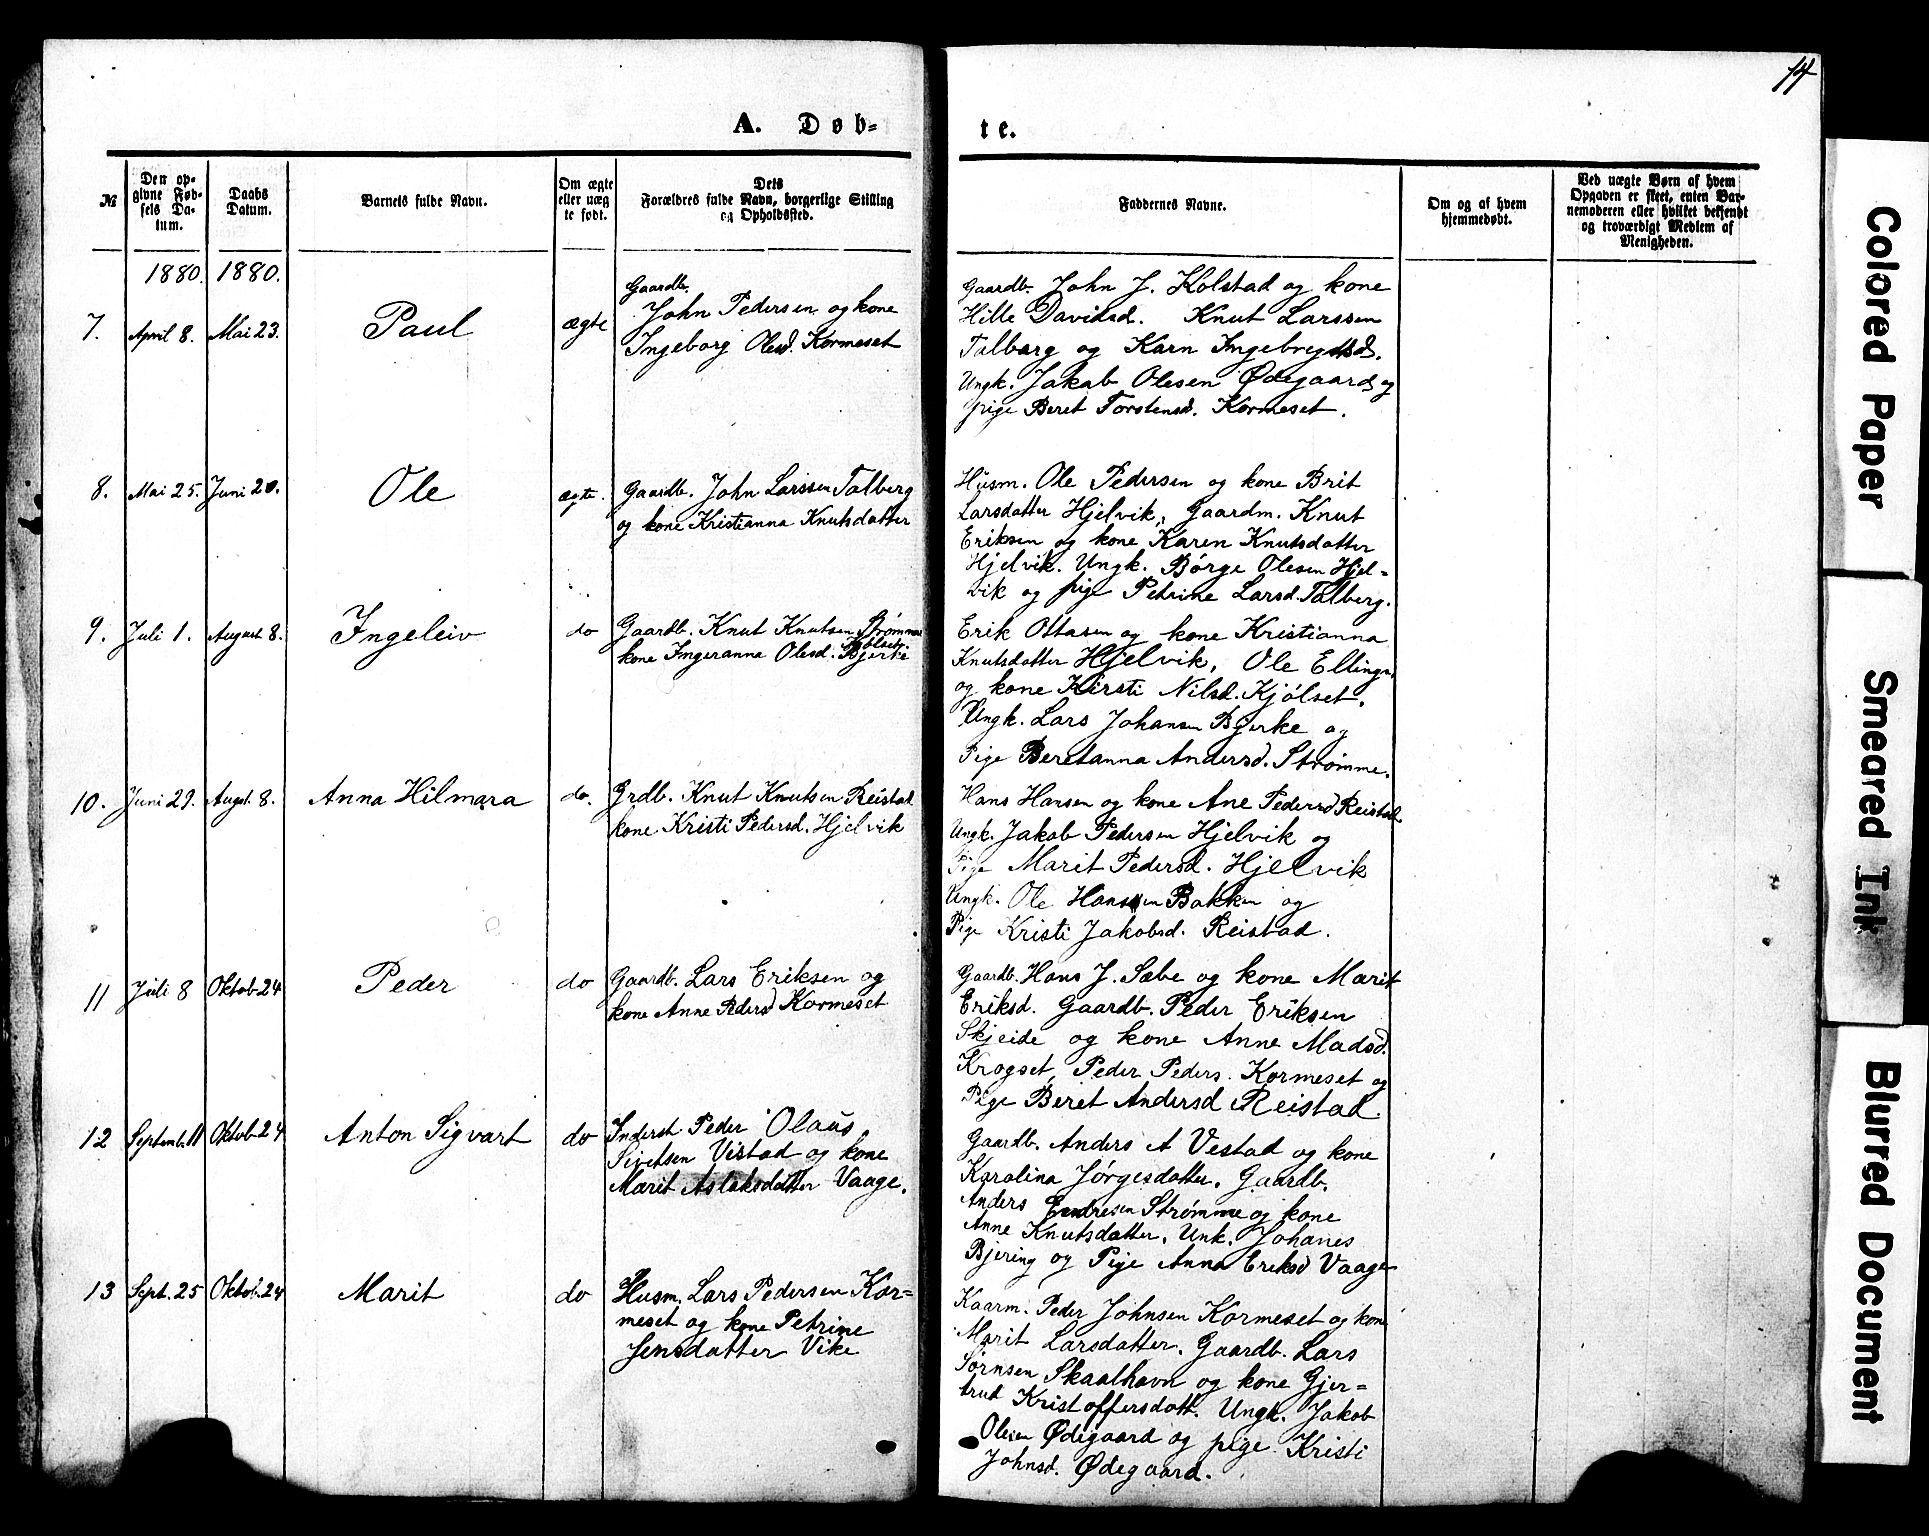 14
A. Døb-
te.
№
Den op-
givne Fød-
sels Da-
tum.
Daabs
Datum.
Barnets fulde Navn.
Om ægte
eller uæg
te født.
Dets
Forældres fulde Navn, borgerlige Stilling
og Opholdssted.
Faddernes Navne.
Om og af hvem
hjemmedøbt.
Ved uægte Børn af hvem
Opgaven er skeet, enten Bar-
nemoderen eller hvilket bekjendt
og troværdigt Medlem af
Menigheden.
1880. 1880.
7. April 8. Mai 23. Paul ægte
Gaardb.
John Pedersen og kone
Ingeborg Olesd. Kormeset
Gaardb. John J. Kolstad og kone
Hille Davidsd. Knut Larssen
Talberg og Karn Ingebrigtsd.
Ungk. Jakab Olesen Ødegaard og
pige Beret Torstensd. Kormeset.
8. Mai 25. Juni 20. Ole ægte.
Gaardb. John Larssen Talberg
og kone Kristianna Knutsdatter
Husm. Ole Pedersen og kone Brit
Larsdatter Hjelvik, Gaardm. Knut
Eriksen og kone Karen Knutsdatter
Hjelvik. Ungk. Børge Olesen Hjel-
vik og pige Petrine Larsd. Talberg.
9. Juli 1. August 8. Ingeleiv do
Gaardb. Knut Knutsen Strømme
kone Ingeranna Olesd. Bjerke
Erik Ottasen og kone Kristianna
Knutsdatter Hjelvik, Ole Ellings.
og kone Kirsti Nilsd. Kjølset.
Ungk. Lars Johansen Bjerke og
Pige Beretanna Andersd. Strømme.
10. Juni 29. Augst. 8. Anna Hilmara do.
Grdb. Knut Knutsen Reistad
kone Kristi Pedersd. Hjelvik
Hans Hansen og kone Ane Pedersd Reistad
Ungk. Jakob Pedersen Hjelvik og
Pige Marit Pedersd. Hjelvik
Ungk. Ole Hanssen Bakken og
Pige Kristi Jakobsd. Reistad.
11 Juli 8 Oktob. 24 Peder do
Gaardb. Lars Eriksen og
kone Anne Pedersd Kormeset
Gaardb. Hans J. Sæbe og kone Marit
Eriksd. Gaardb. Peder Eriksen
Skjeide og kone Anne Madsd.
Krogset, Peder Peders. Kormeset og
Pige Beret Andersd Reistad.
12 Septemb. 11 Oktob. 24 Anton Sigvart do
Inderst Peder Olaus
Sivertsen Vestad og kone
Marit Aslaksdatter Vaage.
Gaardb. Anders A Vestad og kone
Karolina Jørgesdatter. Gaardb.
Anders Endresen Strømme og kone
Anne Knutsdatter. Unk. Johanes
Bjering og Pige Anna Eriksd Vaage
13 Sept. 25 Oktob. 24 Marit do
Husm. Lars Pedersen Kor-
meset og kone Petrine
Jensdatter Vike
Kaarm. Peder Johnsen Kormeset og kone
Marit Larsdatter. Gaardb. Lars
Sørnsen Skaalhavn og kone Gjer-
trud Kristoffersdatt. Ungk. Jakob
Olesen Ødegaard og pige Kristi
Johnsd. Ødegaard.
Colored Paper
Smeared Ink
Blurred Document